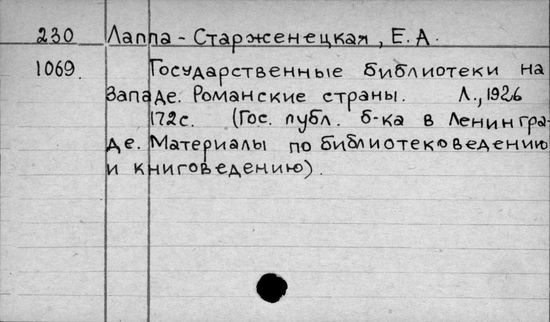 230 Лаппа-Старженецкая, Е.А.
1069. Государственные библиотеки на
Западе. Романские страны. Л., 1926
172с. (Гос. публ. б-ка в Ленингра-
де. Материалы по библиотековедению
и книговедению).